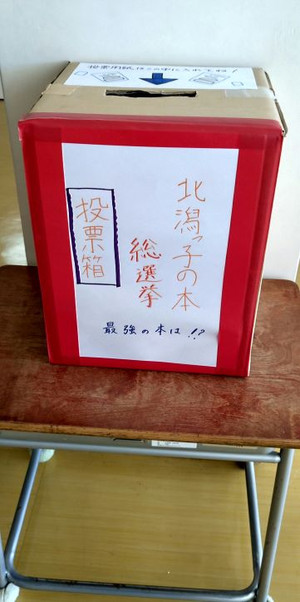 投票用紙はこの中に入れてね!
北潟っ子の本
総選挙
投票箱
最強の本は!?